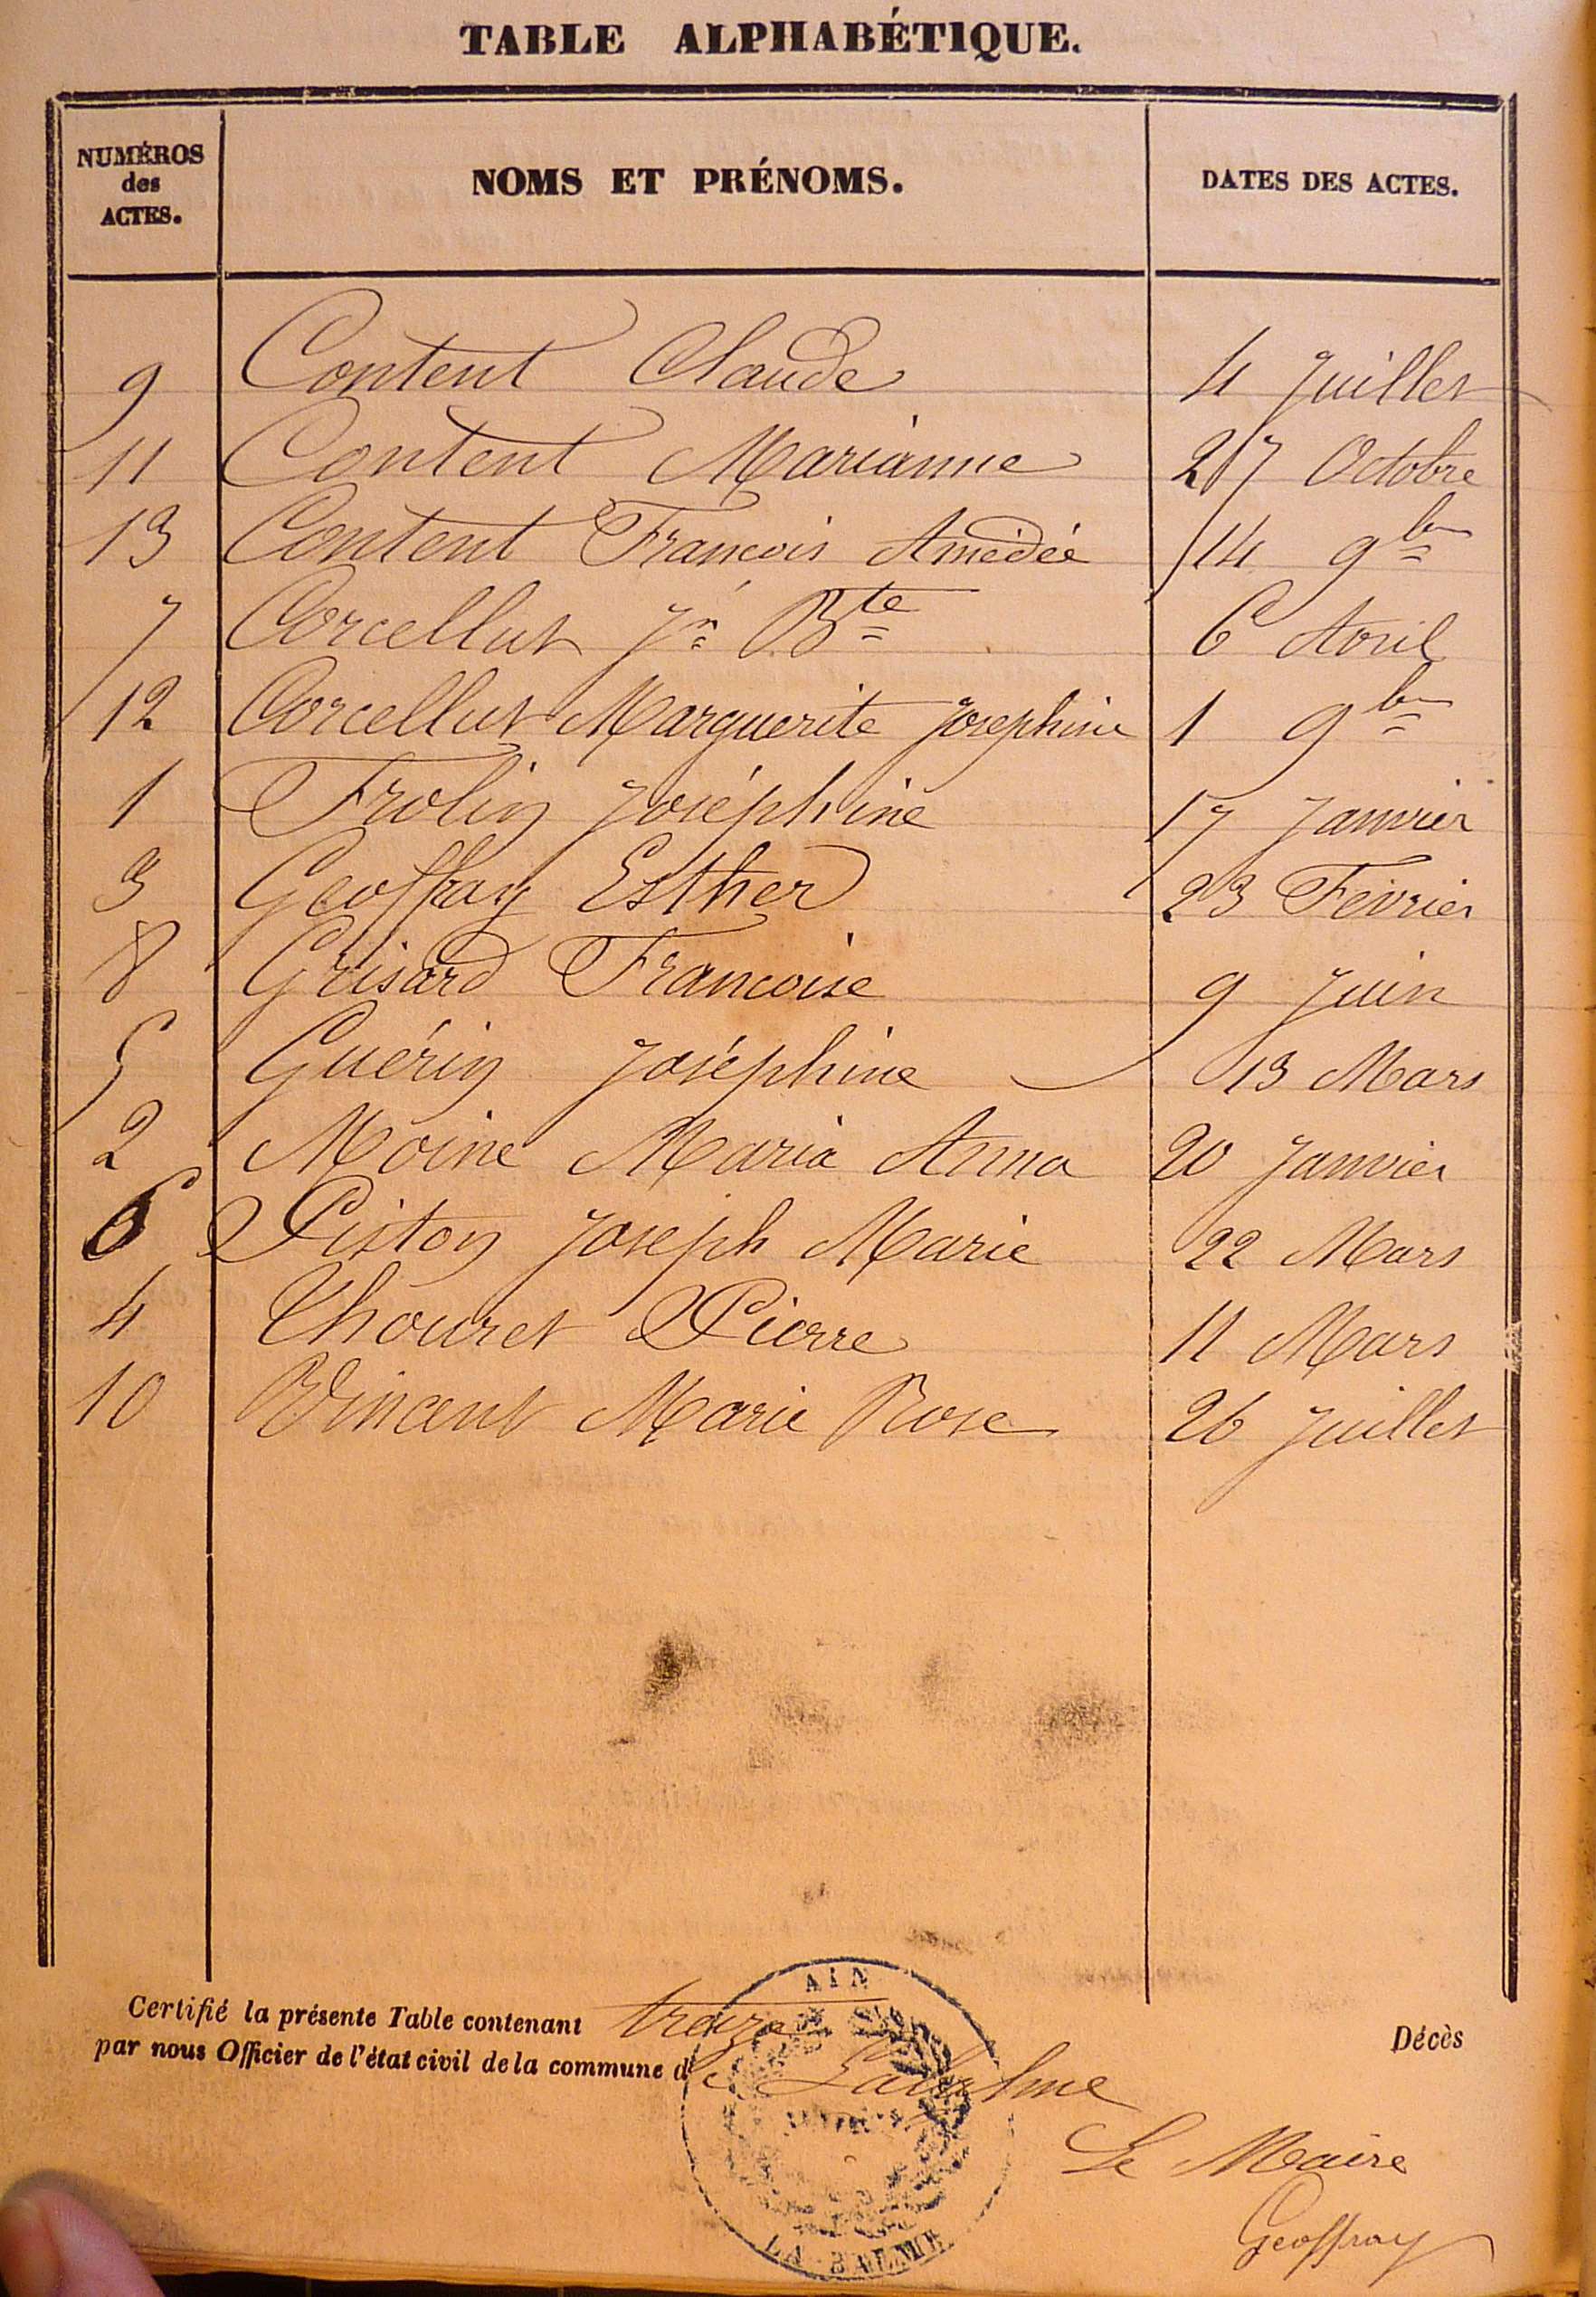 TABLE ALPHABÉTIQUE.
NUMÉROS des ACTES. NOMS ET PRÉNOMS. DATES DES ACTES.
9 Content Claude 4 Juillet
11 Content Marianne 27 Octobre
13 Content Francois Amédée 14 9bre
7 Corcellut Jn Bte 6 Avril
12 Corcellut Marguerite Josephine 1 9bre
1 Frolin Joséphine 17 Janvier
3 Geoffray Esther 23 Février
8 Grisard Francoise 9 Juin
5 Guérin Joséphine 13 Mars
2 Moine Maria Anna 20 Janvier
6 Piston Joseph Marie 22 Mars
4 Thouret Pierre 11 Mars
10 Vincent Marie Rose 26 Juillet
Certifié la présente Table contenant treize Décès
par nous Officier de l'état civil de la commune de Labalme
Le Maire
Geoffray
AIN
LA BALME